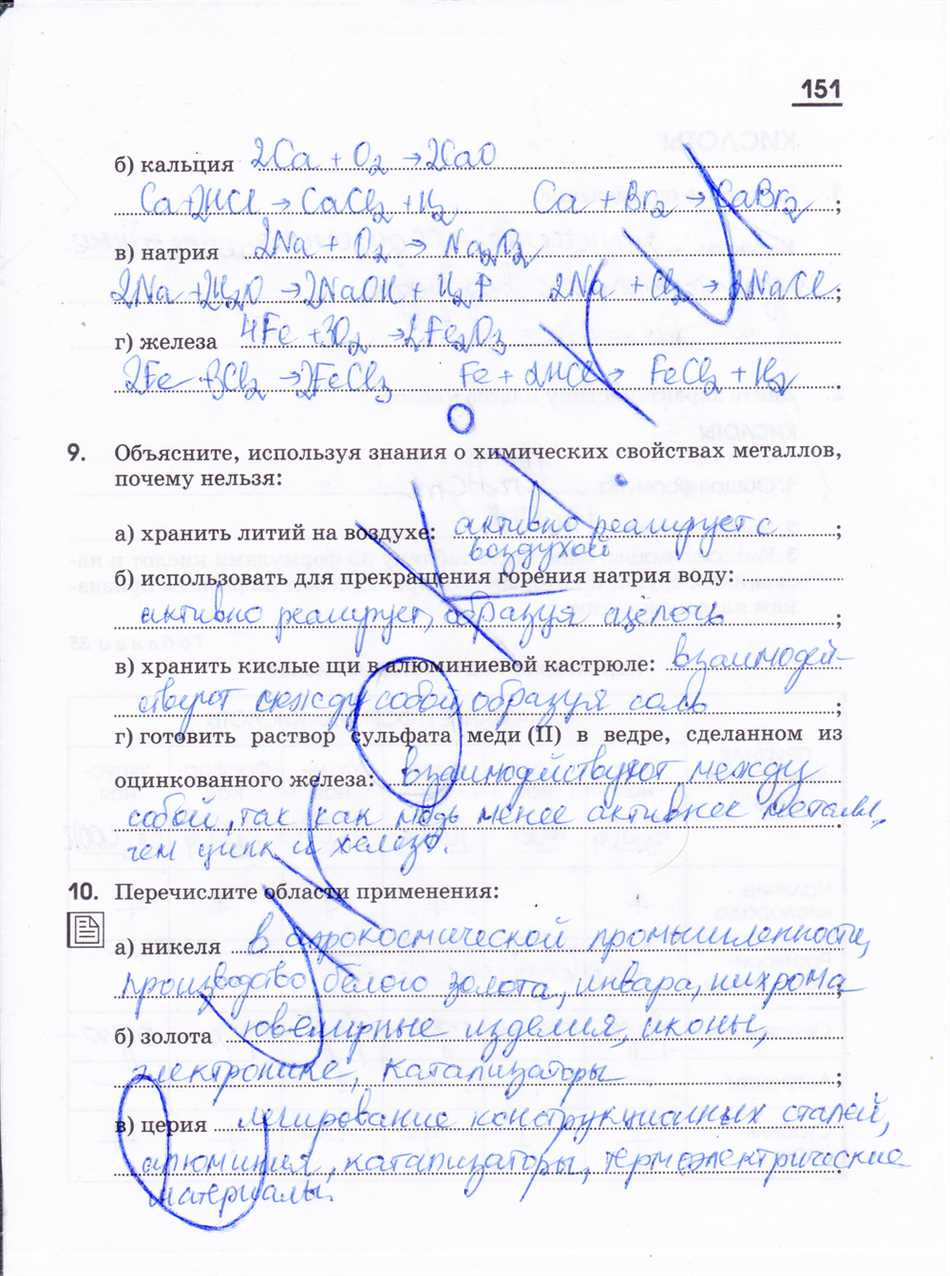 151
б) кальция 2Ca + O₂ → 2CaO
Ca+2HCl → CaCl₂ + H₂ Ca + Br₂ → CaBr₂ ;
в) натрия 2Na + O₂ → Na₂O₂
2Na +2H₂O → 2NaOH + H₂↑ 2Na + Cl₂ → 2NaCl ;
г) железа 4Fe +3O₂ → 2Fe₂O₃
2Fe +3Cl₂ → 2FeCl₃ Fe + 2HCl → FeCl₂ + H₂ .
9. Объясните, используя знания о химических свойствах металлов,
почему нельзя:
а) хранить литий на воздухе: активно реагирует с ;
воздухой
б) использовать для прекращения горения натрия воду:
активно реагирует, образуя щелочь ;
в) хранить кислые щи в алюминиевой кастрюле: взаимодей-
ствуют между собой, образуя соль ;
г) готовить раствор сульфата меди (II) в ведре, сделанном из
оцинкованного железа: взаимодействуют между
собой, так как медь менее активнее металл,
чем цинк и железо.
10. Перечислите области применения:
а) никеля в аэрокосмической промышленности,
производство белого золота, инвара, нихрома ;
б) золота ювелирные изделия, иконы,
электронике, катализаторы ;
в) церия легирование конструкционных сталей,
алюминия, катализаторы, термоэлектрические
материалы.